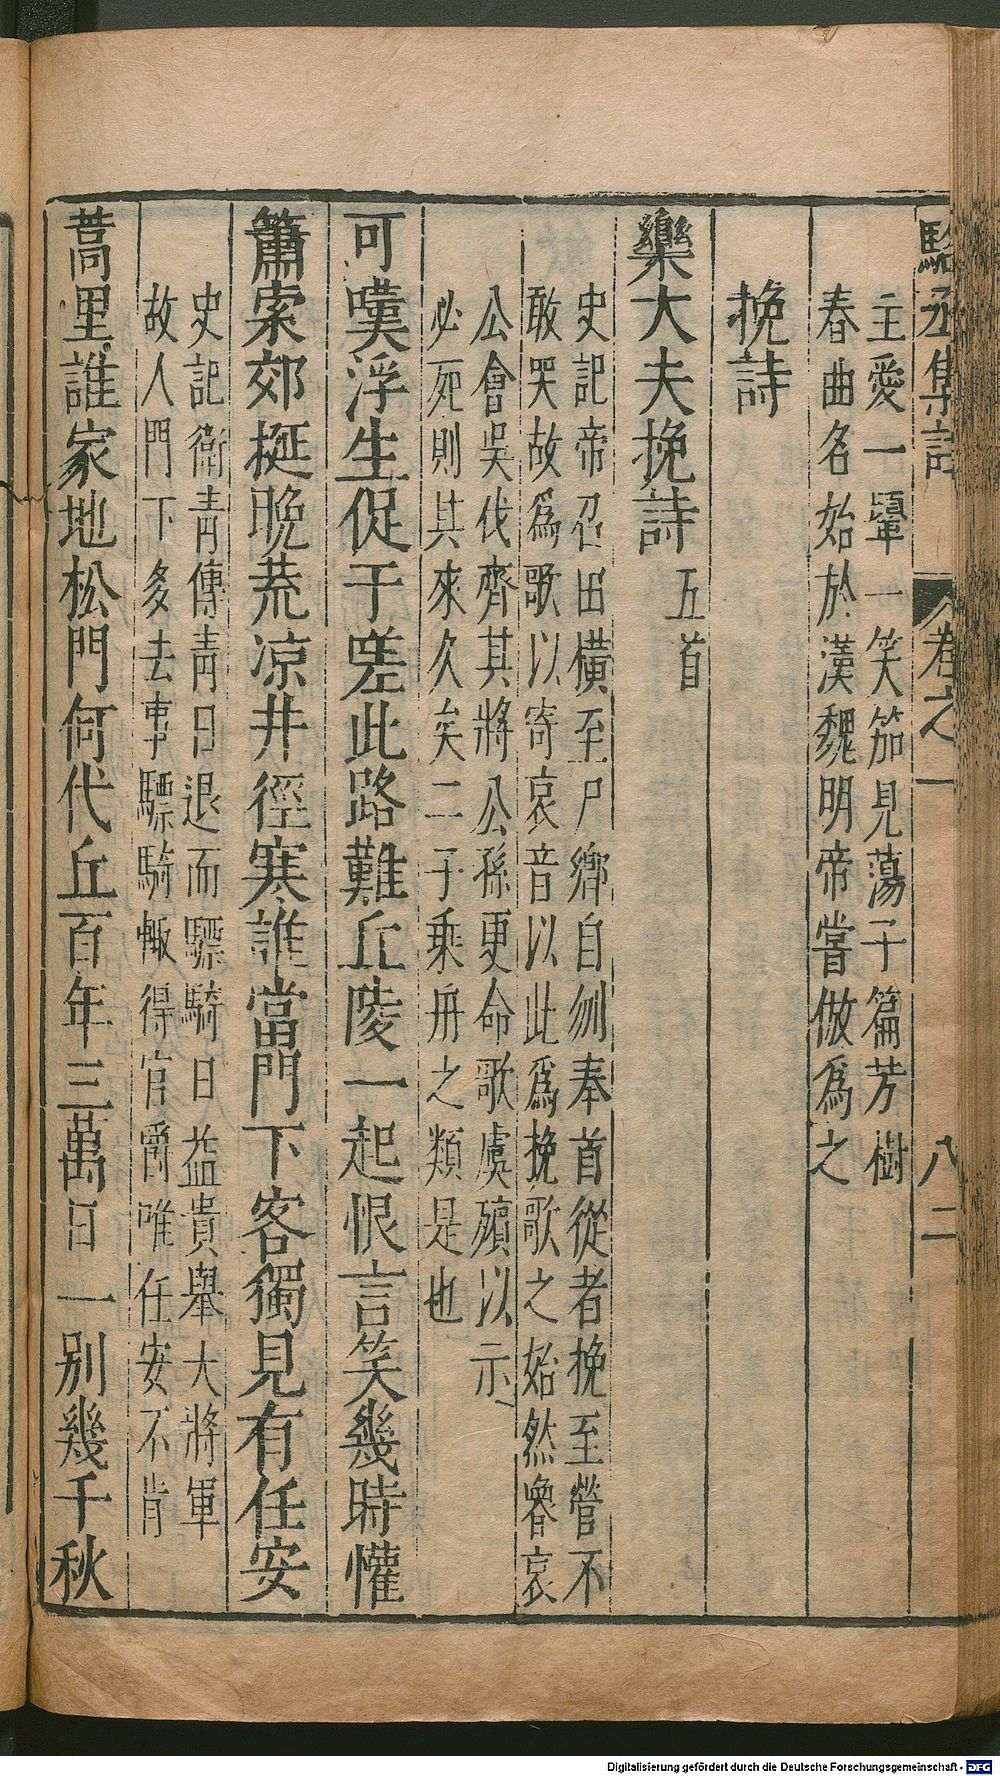 駱丞集註 卷之一 八二
主愛一顰一笑笳見蕩子篇芳樹
春曲名始於漢魏明帝嘗倣爲之
挽詩
樂大夫挽詩 五首
史記帝召田橫至尸鄉自刎奉首從者挽至營不
敢哭故爲歌以寄哀音以此爲挽歌之始然魯哀
公會吳伐齊其將公孫更命歌虞殯以示
必死則其來久矣二子乘舟之類是也
可嘆浮生促于嗟此路難丘陵一起恨言笑幾時懽
簫索郊埏晚荒凉井徑寒誰當門下客獨見有任安
史記衛青傳青日退而驃騎日益貴舉大將軍
故人門下多去事驃騎輙得官爵唯任安不肯
蒿里誰家地松門何代丘百年三萬日一别幾千秋
Digitalisierung gefördert durch die Deutsche Forschungsgemeinschaft - DFG